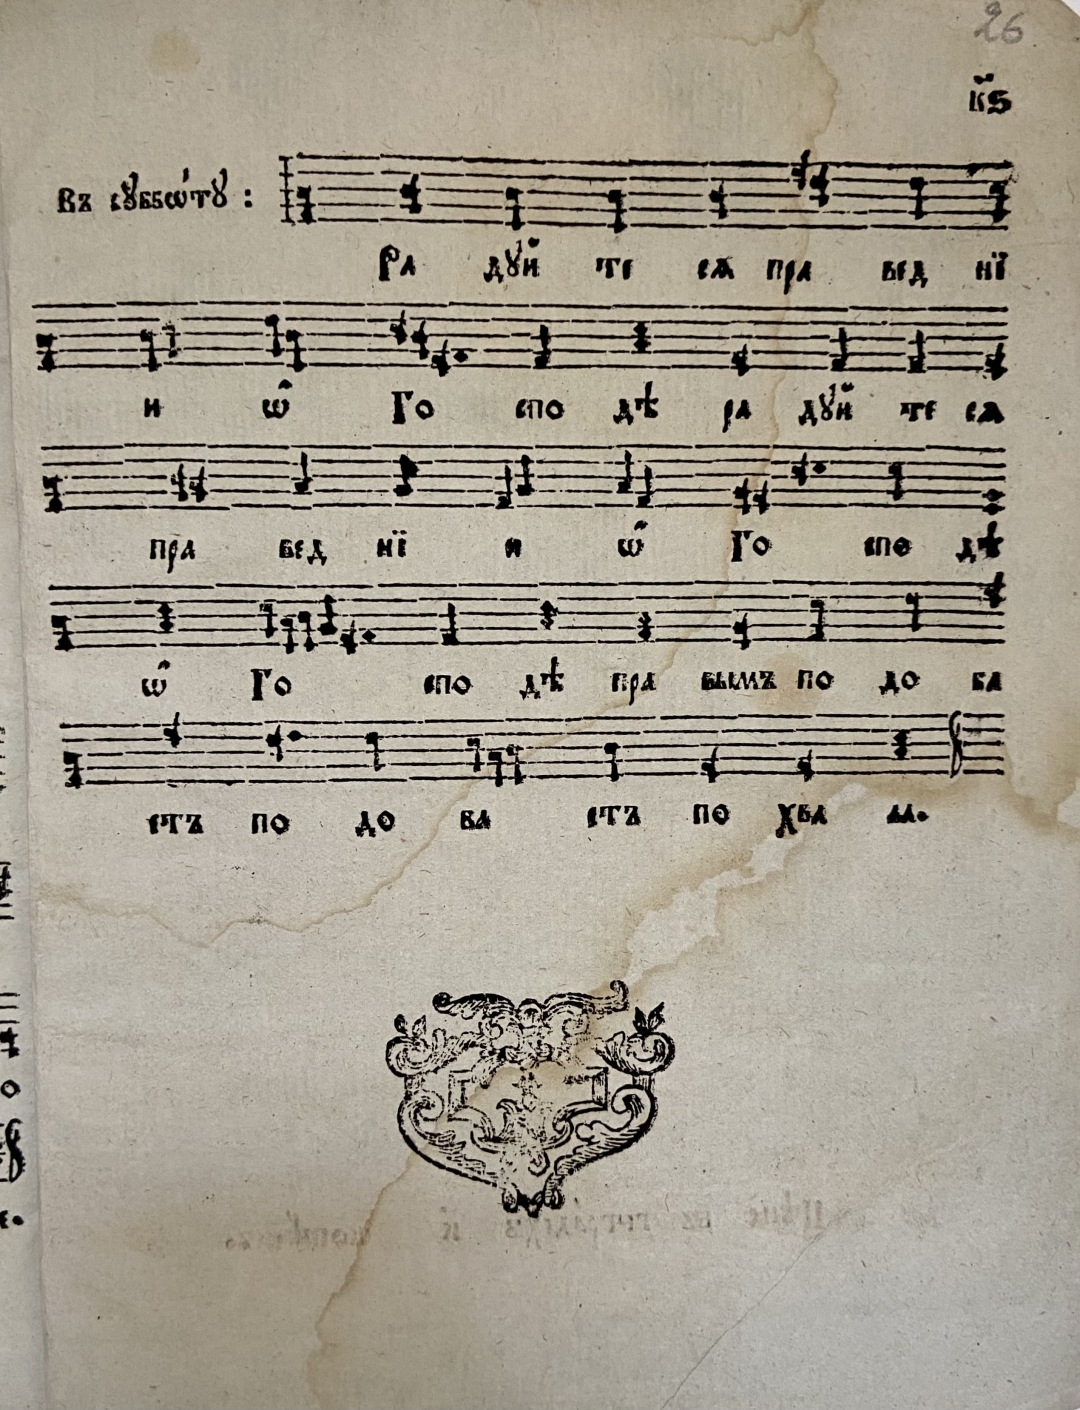 26
к҃ѕ
Въ сꙋббѡ́тꙋ :
Ра дꙋй те сѧ пра вед нї
и ѡ Го спо дѣ ра дꙋй те сѧ
пра вед нї и ѡ Го спо дѣ
ѡ Го спо дѣ пра вымъ по до ба
етъ по до ба етъ по хва ла.